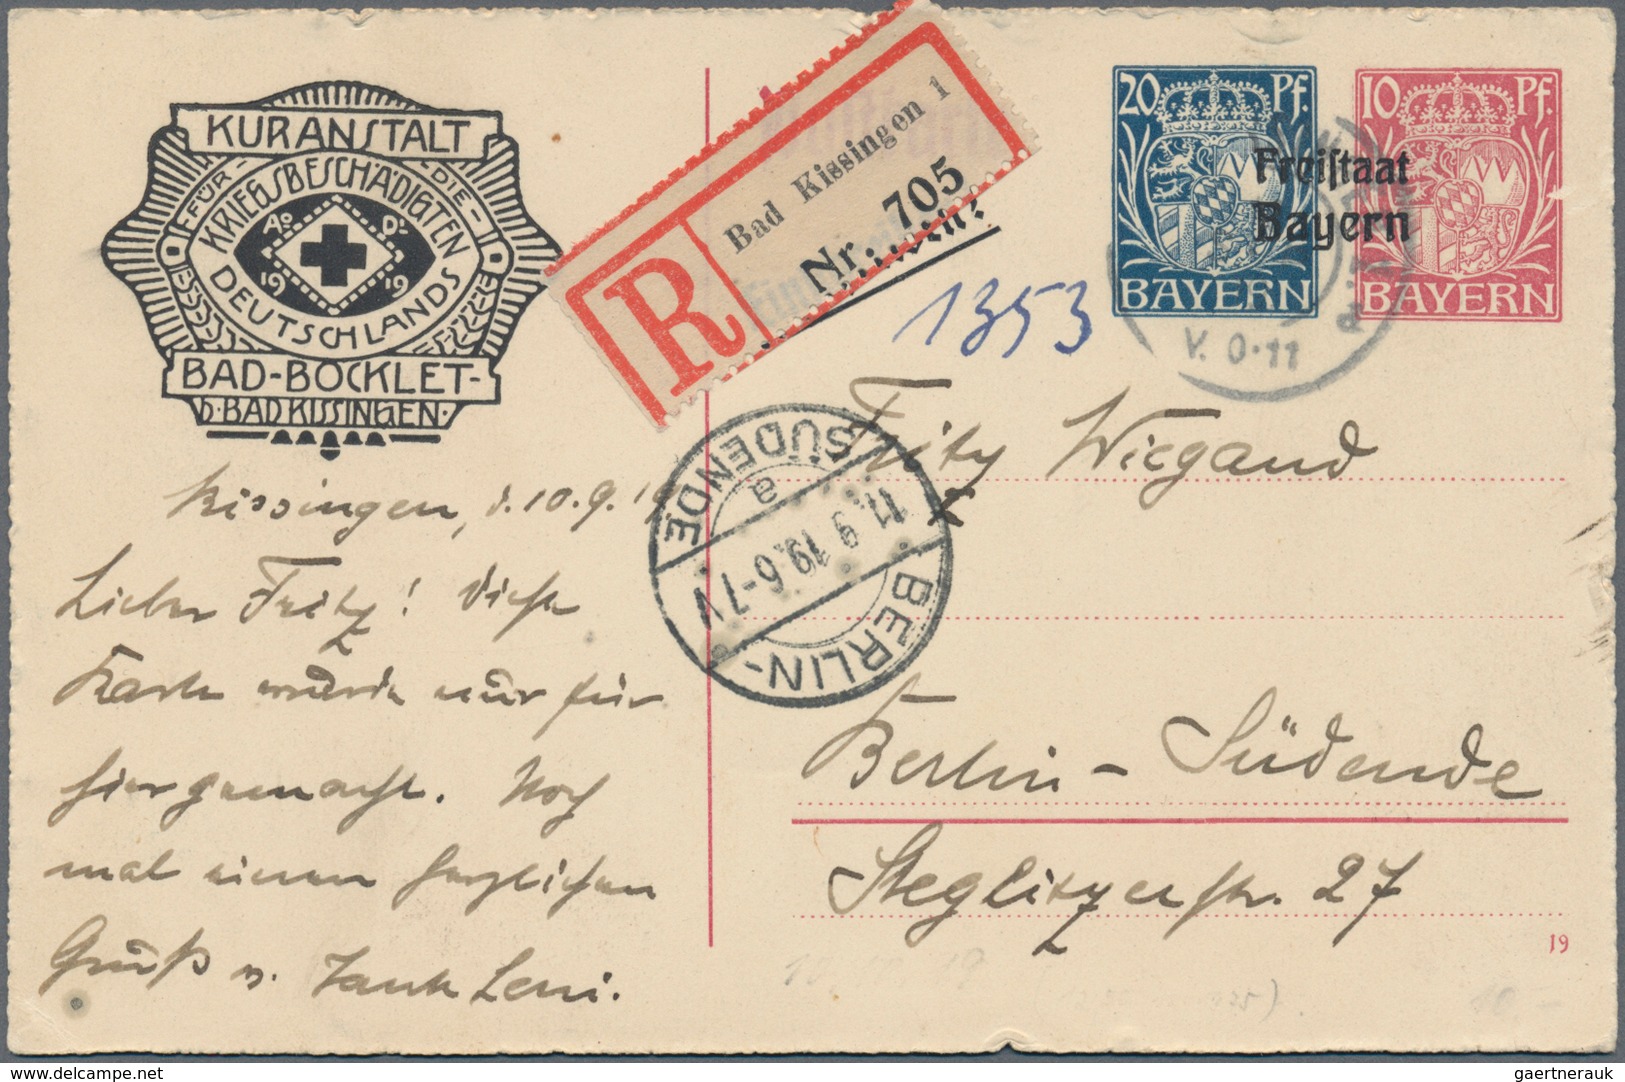 KURANSTALT
FÜR DIE
KRIEGSBESCHÄDIGTEN
Ao Di
1919
DEUTSCHLANDS
BAD-BOCKLET-
b. BAD KISSINGEN.
R
Bad Kissingen 1
Nr. 705
1353
20 Pf.
BAYERN
10 Pf.
BAYERN
Freistaat
Bayern
V. 0-11
BERLIN-
SÜDENDE
a
11. 9 19. 6-7 V
Kissingen, d. 10.9.19
Lieber Fritz! Diese
Karte wurde nur für
hier gemacht. Noch
mal einen herzlichen
Gruß v. Tante Leni.
Fritz Wiegand
Berlin - Südende
Steglitzerstr. 27
19
gaertnerauk